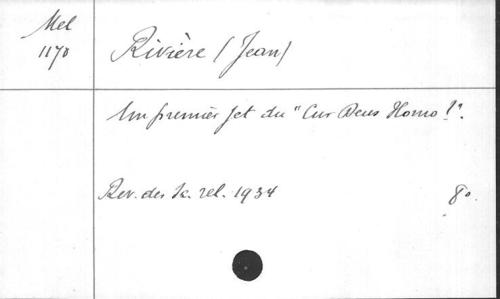 Mel
1170
Rivière (Jean)
Un premier jet du "Cur Deus Homo?".
Rev. des Sc. rel. 1934 8o.